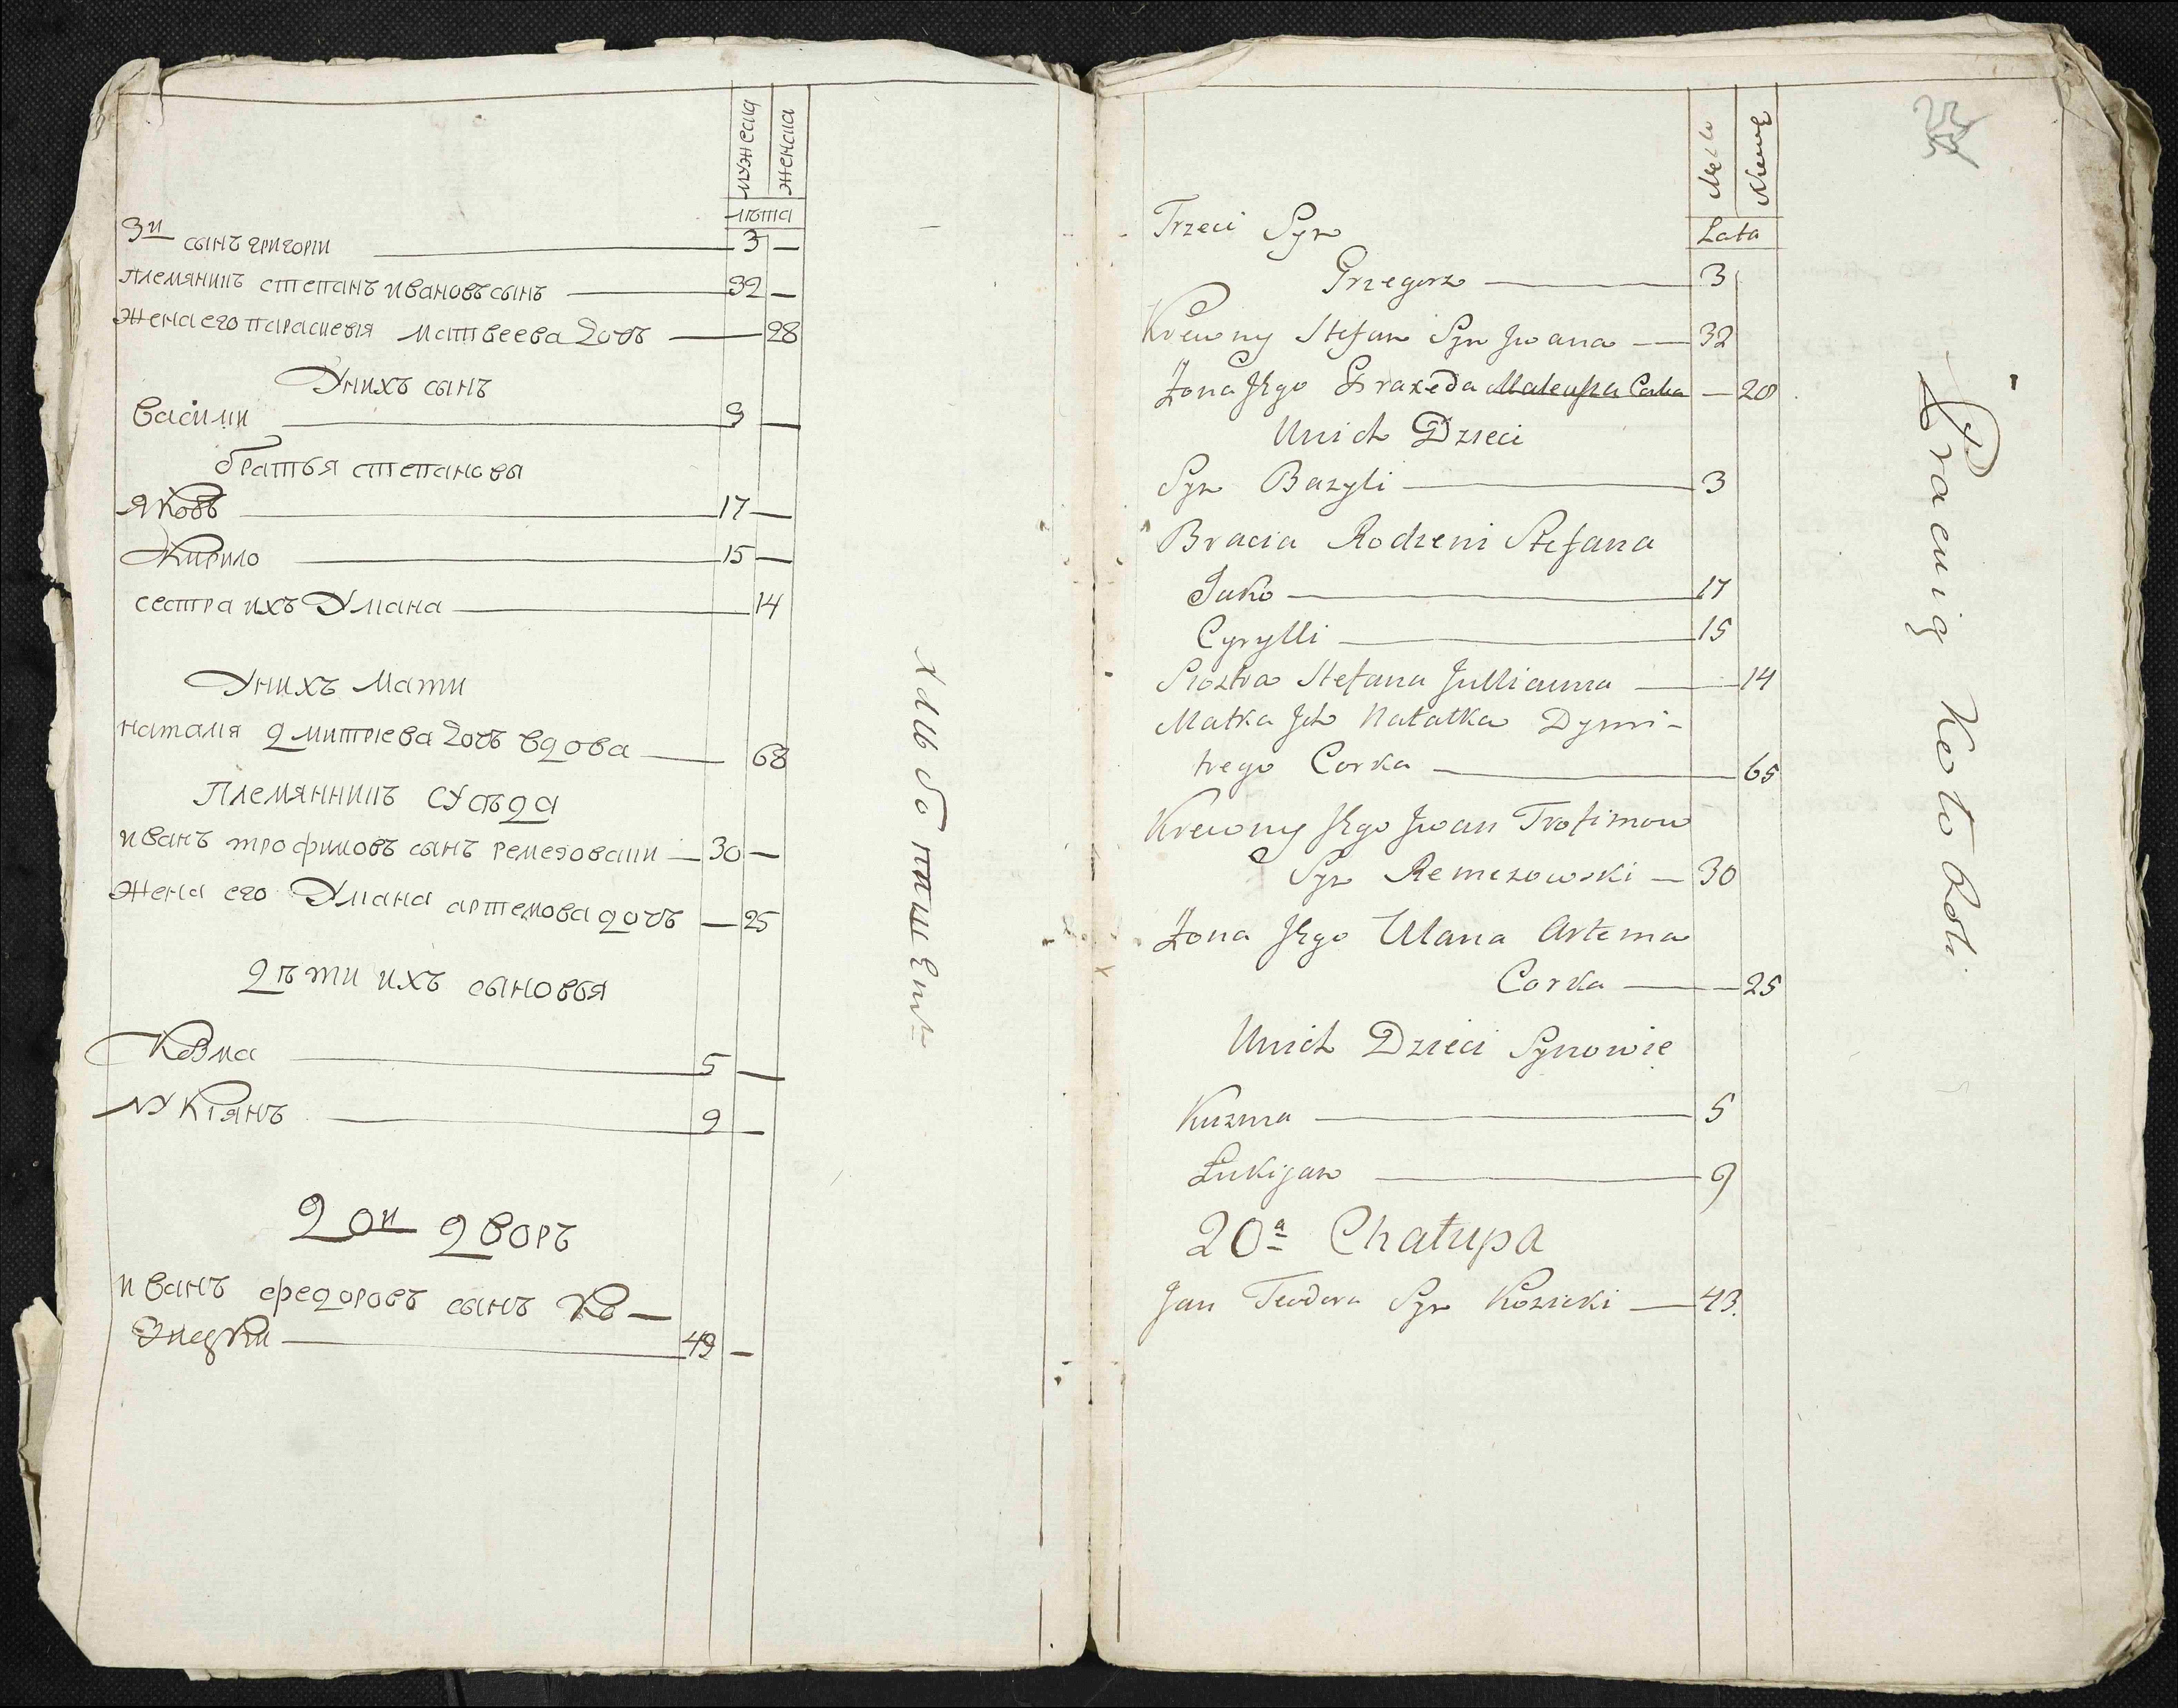 мужеска
женска
лѣта
3й сынъ григории 3 —
племяникъ степанъ ивановъ сынъ 32 —
жена его параскевия матвеева дочъ 28
Унихъ сынъ
василии 3 —
братья степановы
яковъ 17 —
Кирило 15 —
сестра ихъ Улиана 14
Унихъ мати
наталия дмитриева дочъ вдова 68
племянникъ сусѣда
иванъ трофимовъ сынъ ремезовски 30 —
жена его Улиана артемова дочъ 25
дѣти ихъ сыновья
Козма 5 —
лукиянъ 9 —
20й дворъ
иванъ федоровъ сынъ Ко—
зицки 43 —
хлѣбопашець
Męzka
Lata
Trzeci Syn
Grzegorz 3
Krewny Stefan Syn Jwana 32
Żona Jego Praxeda Mateusza Corka 28
Unich Dzieci
Syn Bazyli 3
Bracia Rodzeni Stefana
Jako 17
Cyrylli 15
Siostra Stefana Jullianna 14
Matka Jch Natalka Dymi-
trego Corka 65
Krewny Jego Jwan Trofimow
Syn Remezowski 30
Żona Jego Ulana Artema
Corka 25
Unich Dzieci Synowie
Kuzma 5
Łukijan 9
20a Chałupa
Jan Teodora Syn Kozicki 43.
Pracuią Koło Roli